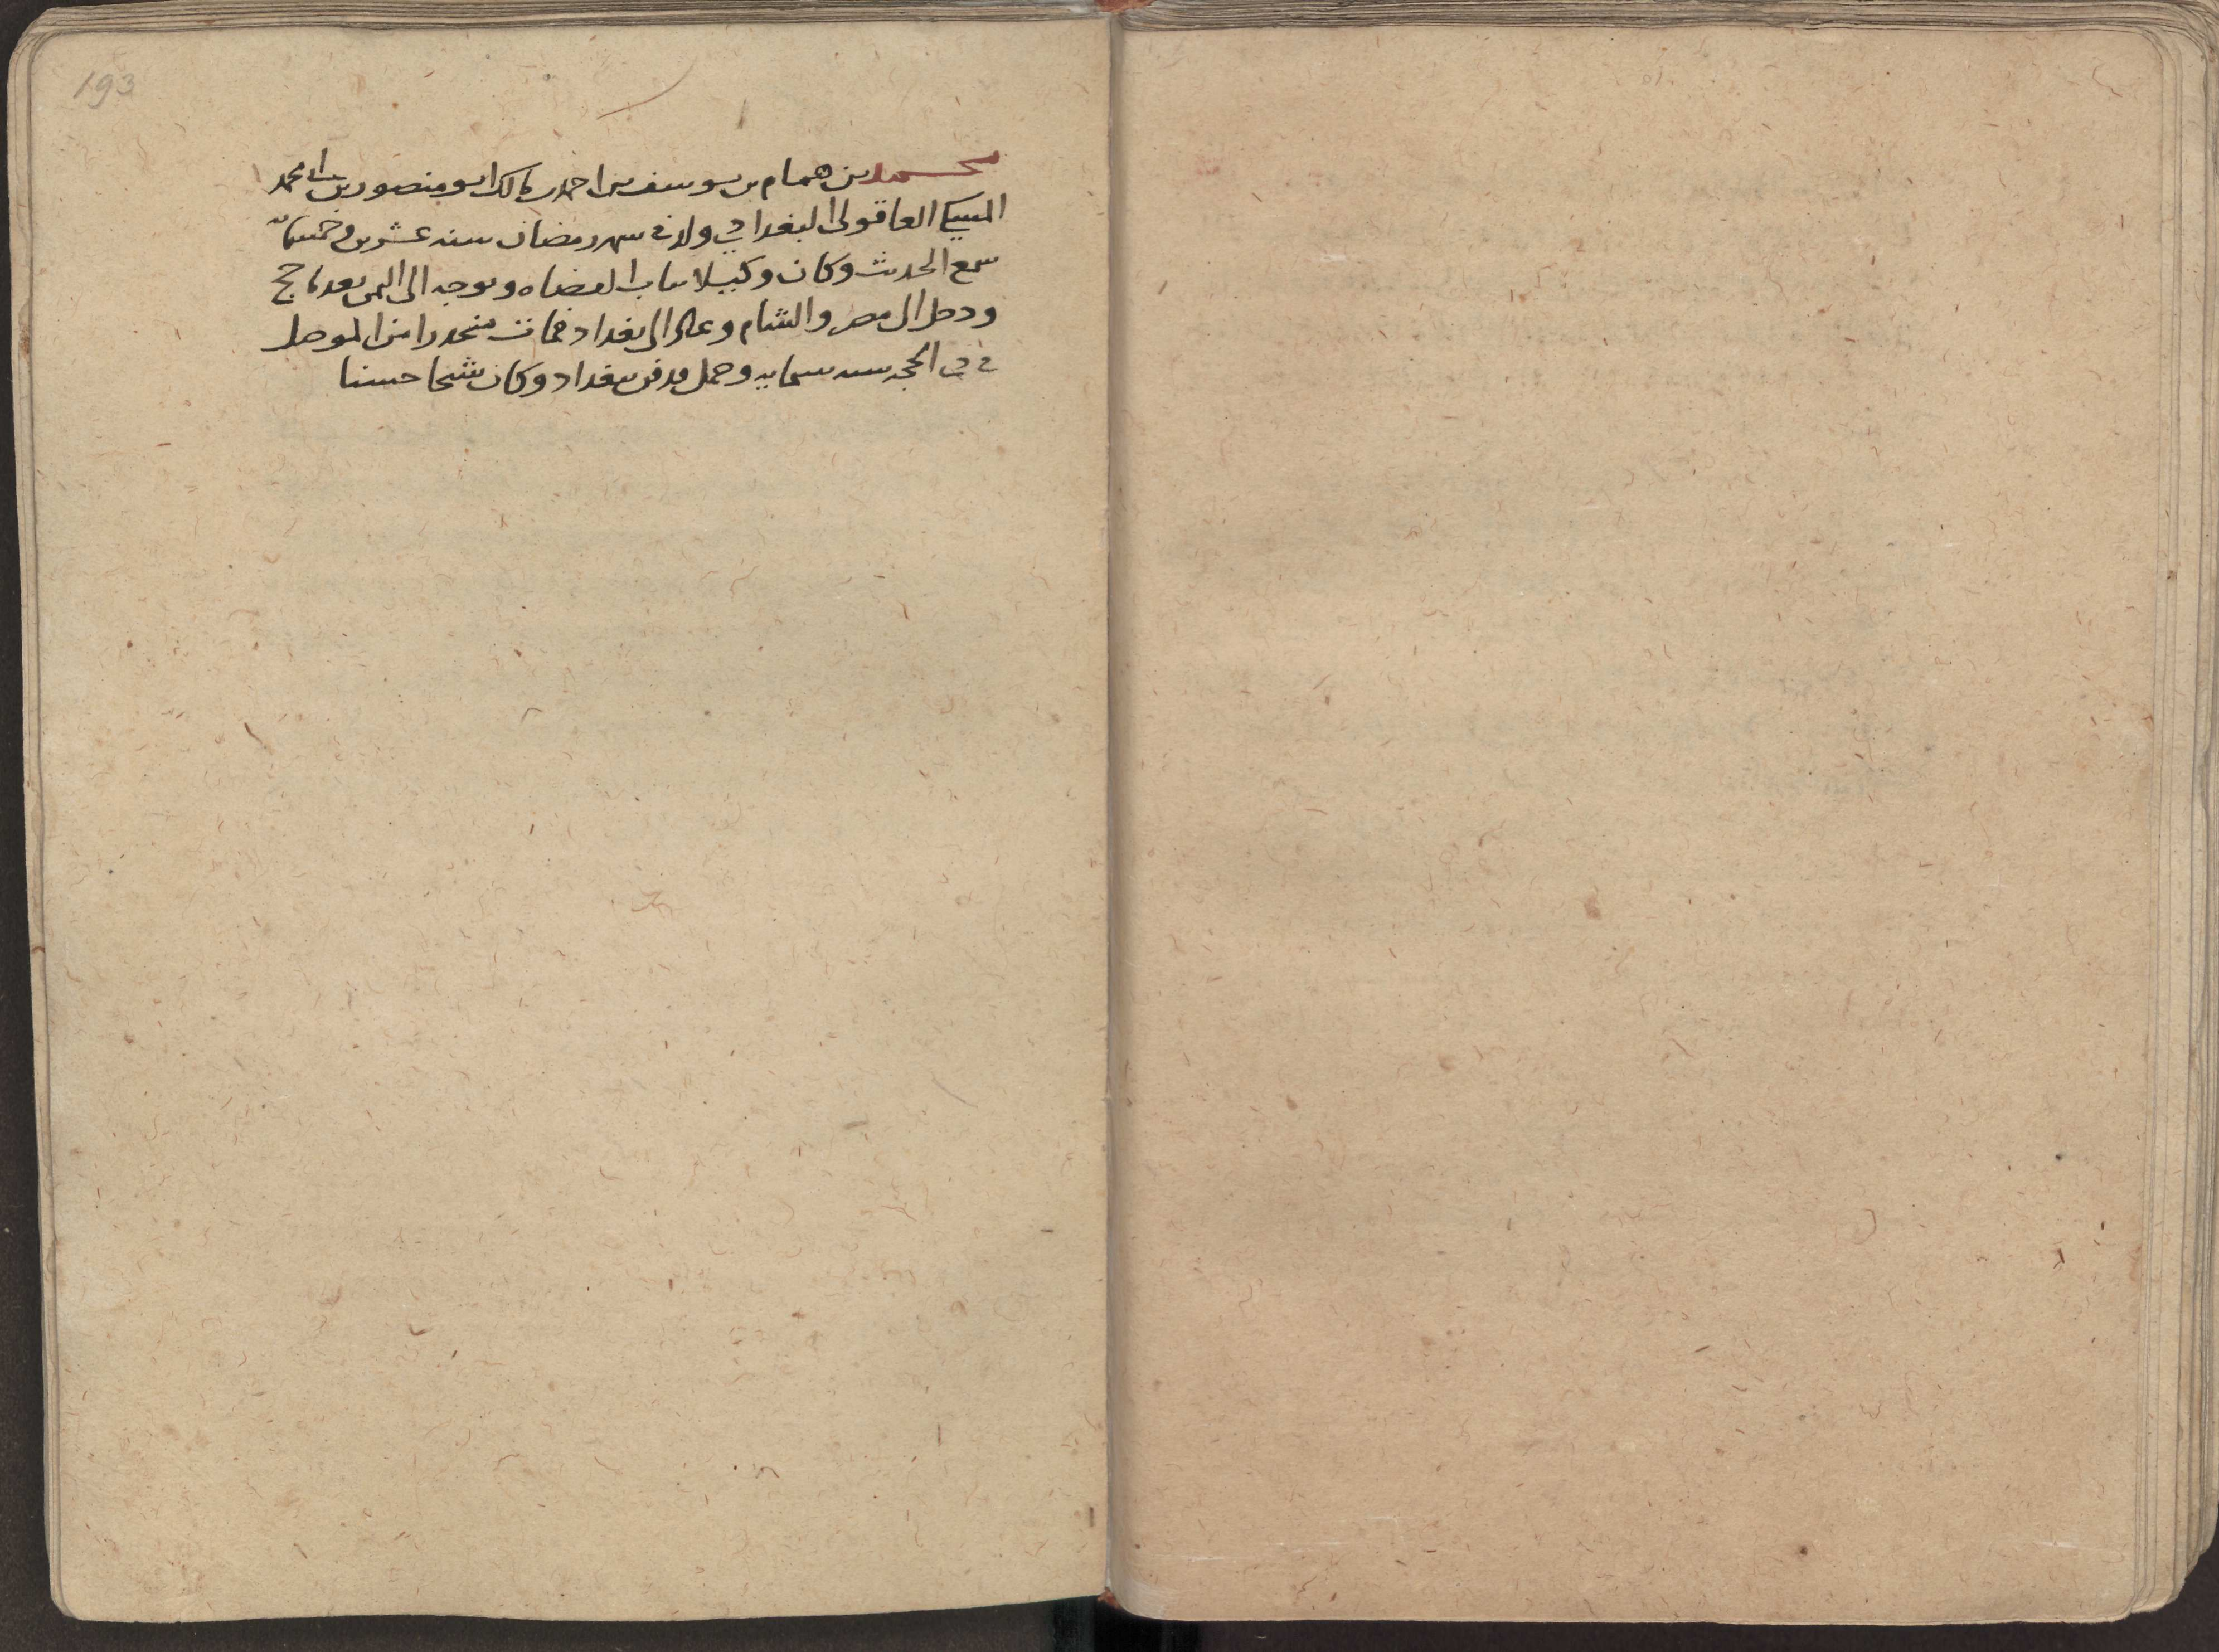 193
محمد بن همام بن يوسف بن احمد بن مالك ابو منصور بن ابى محمد
العاقولى البغدادي ولد فى شهر رمضان سنه عشرين وخمسمائة
سمع الحديث وكان وكيلا بباب القضاه وتوجه الى اليمن بعد ما حج
ودخل الى مصر والشام وعاد الى بغداد فمات منحدرا من الموصل
فى ذى الحجه سنه ستمايه وحمل فدفن ببغداد وكان شيخا حسنا